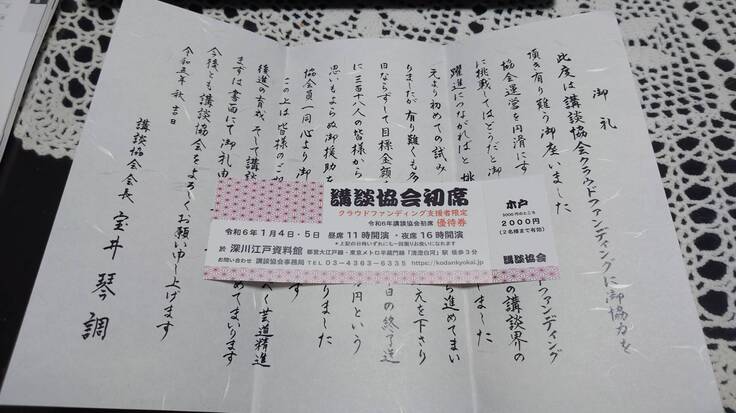 御礼
此度は講談協会クラウドファンディングに御協力を
頂き有り難う御座いました
協会運営を円滑にす
ドファンディング
に挑戦してはどうだと御
の講談界の
躍進につながればと挑
しました
元より初めての試み
ら進めてまい
りましたが有り難くも多
元を下さり
日ならずして目標金額
日の終了迄
に三百十八人の皆様から
円という
思いもよらぬ御援助を
りました
協会員一同心より御
この上は皆様のご
後進の育成、そして講談
く芸道精進
ますは書面にて御礼申
めてまいります
今後とも講談協会をよろしくお願い申し上げます
令和五年秋吉日
講談協会会長 宝井琴調
講談協会初席
クラウドファンディング支援者限定
令和6年講談協会初席 優待券
令和6年1月4日・5日 昼席11時開演・夜席16時開演
*上記の日時いずれにも一回限りお使いになれます
於 深川江戸資料館 都営大江戸線・東京メトロ半蔵門線「清澄白河」駅 徒歩3分
お問い合わせ 講談協会事務局 TEL 03-4363-6335 https://kodankyokai.jp
木戸
3000円のところ
2000円
(2名様まで有効)
講談協会